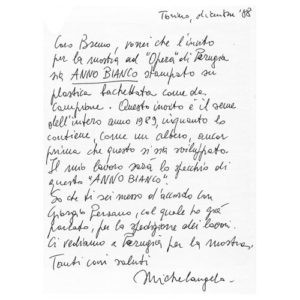 Torino, dicembre '88
Caro Bruno, vorrei che l'invito
per la mostra ad "Opera" di Perugia
sia ANNO BIANCO stampato su
plastica bachettata come da
campione. Questo invito è il seme
dell'intero anno 1989, in quanto lo
contiene, come un albero, ancor
prima che questo si sia sviluppato.
Il mio lavoro sarà lo specchio di
questo "ANNO BIANCO".
So che ti sei messo d'accordo con
Giorgio Persano, col quale ho già
parlato, per la spedizione dei lavori.
Ci vediamo a Perugia per la mostra,
Tanti cari saluti
Michelangelo